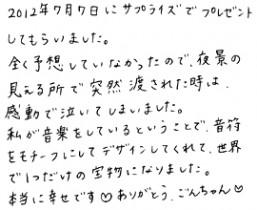 2012年7月7日にサプライズでプレゼント
してもらいました。
全く予想していなかったので、夜景の
見える所で突然渡された時は、
感動で泣いてしまいました。
私が音楽をしているということで、音符
をモチーフにしてデザインしてくれて、世界
で1つだけの宝物になりました。
本当に幸せです♡ありがとう、ごんちゃん♡